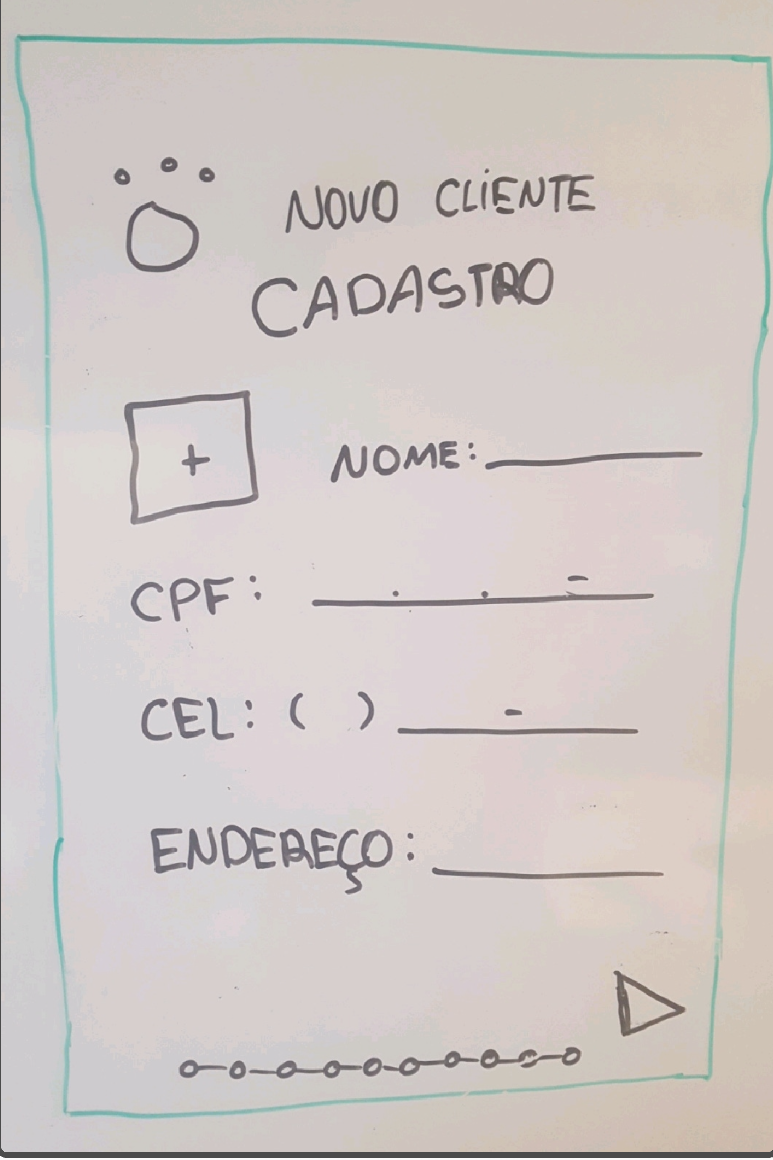 NOVO CLIENTE
CADASTRO
+ NOME: ________
CPF: ____.____.____-____
CEL: ( ) ____-____
ENDEREÇO: ________